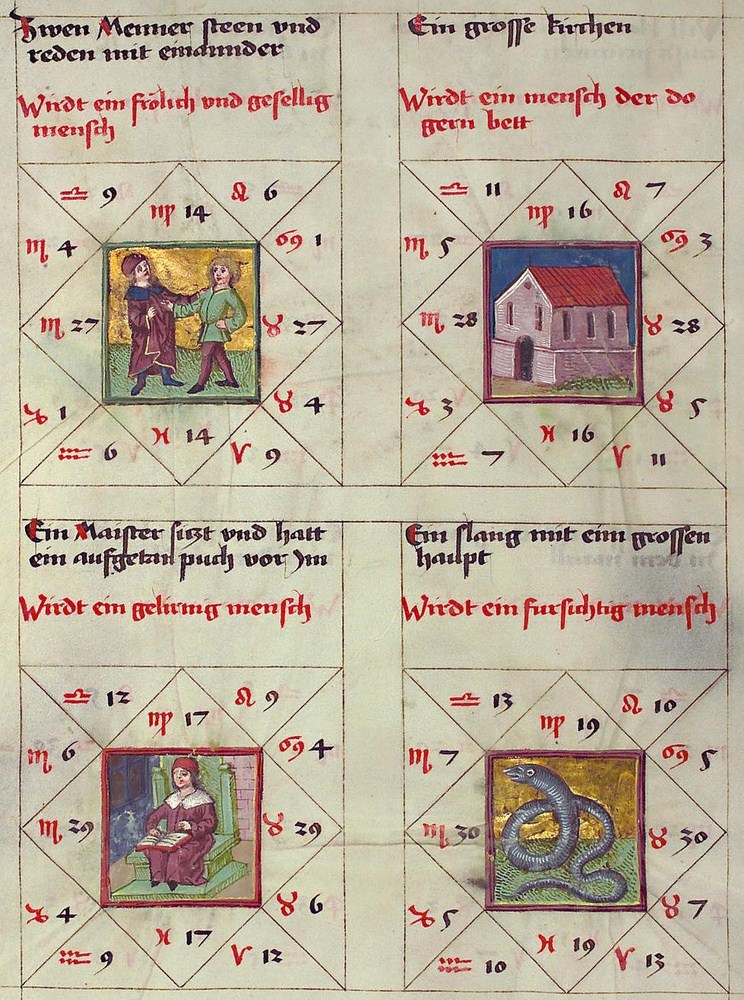 Zwen Menner steen vnd
reden mit einannder
Wirdt ein frölich vnd gesellig
mensch
♎ 9
♍ 14
♌ 6
♏ 4
69 1
♏ 27
♉ 27
♑ 1
♉ 4
♒ 6
♓ 14
♈ 9
Ein grosse kirchen
Wirdt ein mensch der do
gern bett
♎ 11
♍ 16
♌ 7
♏ 5
69 3
♏ 28
♉ 28
♑ 3
♉ 5
♒ 7
♓ 16
♈ 11
Ein Maister sitzt vnd hatt
ein aufgetan puch vor Im
Wirdt ein gelirnig mensch
♎ 12
♍ 17
♌ 9
♏ 6
69 4
♏ 29
♉ 29
♑ 4
♉ 6
♒ 9
♓ 17
♈ 12
Ein slang mit eim grossen
haupt
Wirdt ein fursichtig mensch
♎ 13
♍ 19
♌ 10
♏ 7
69 5
♏ 30
♉ 30
♑ 5
♉ 7
♒ 10
♓ 19
♈ 13